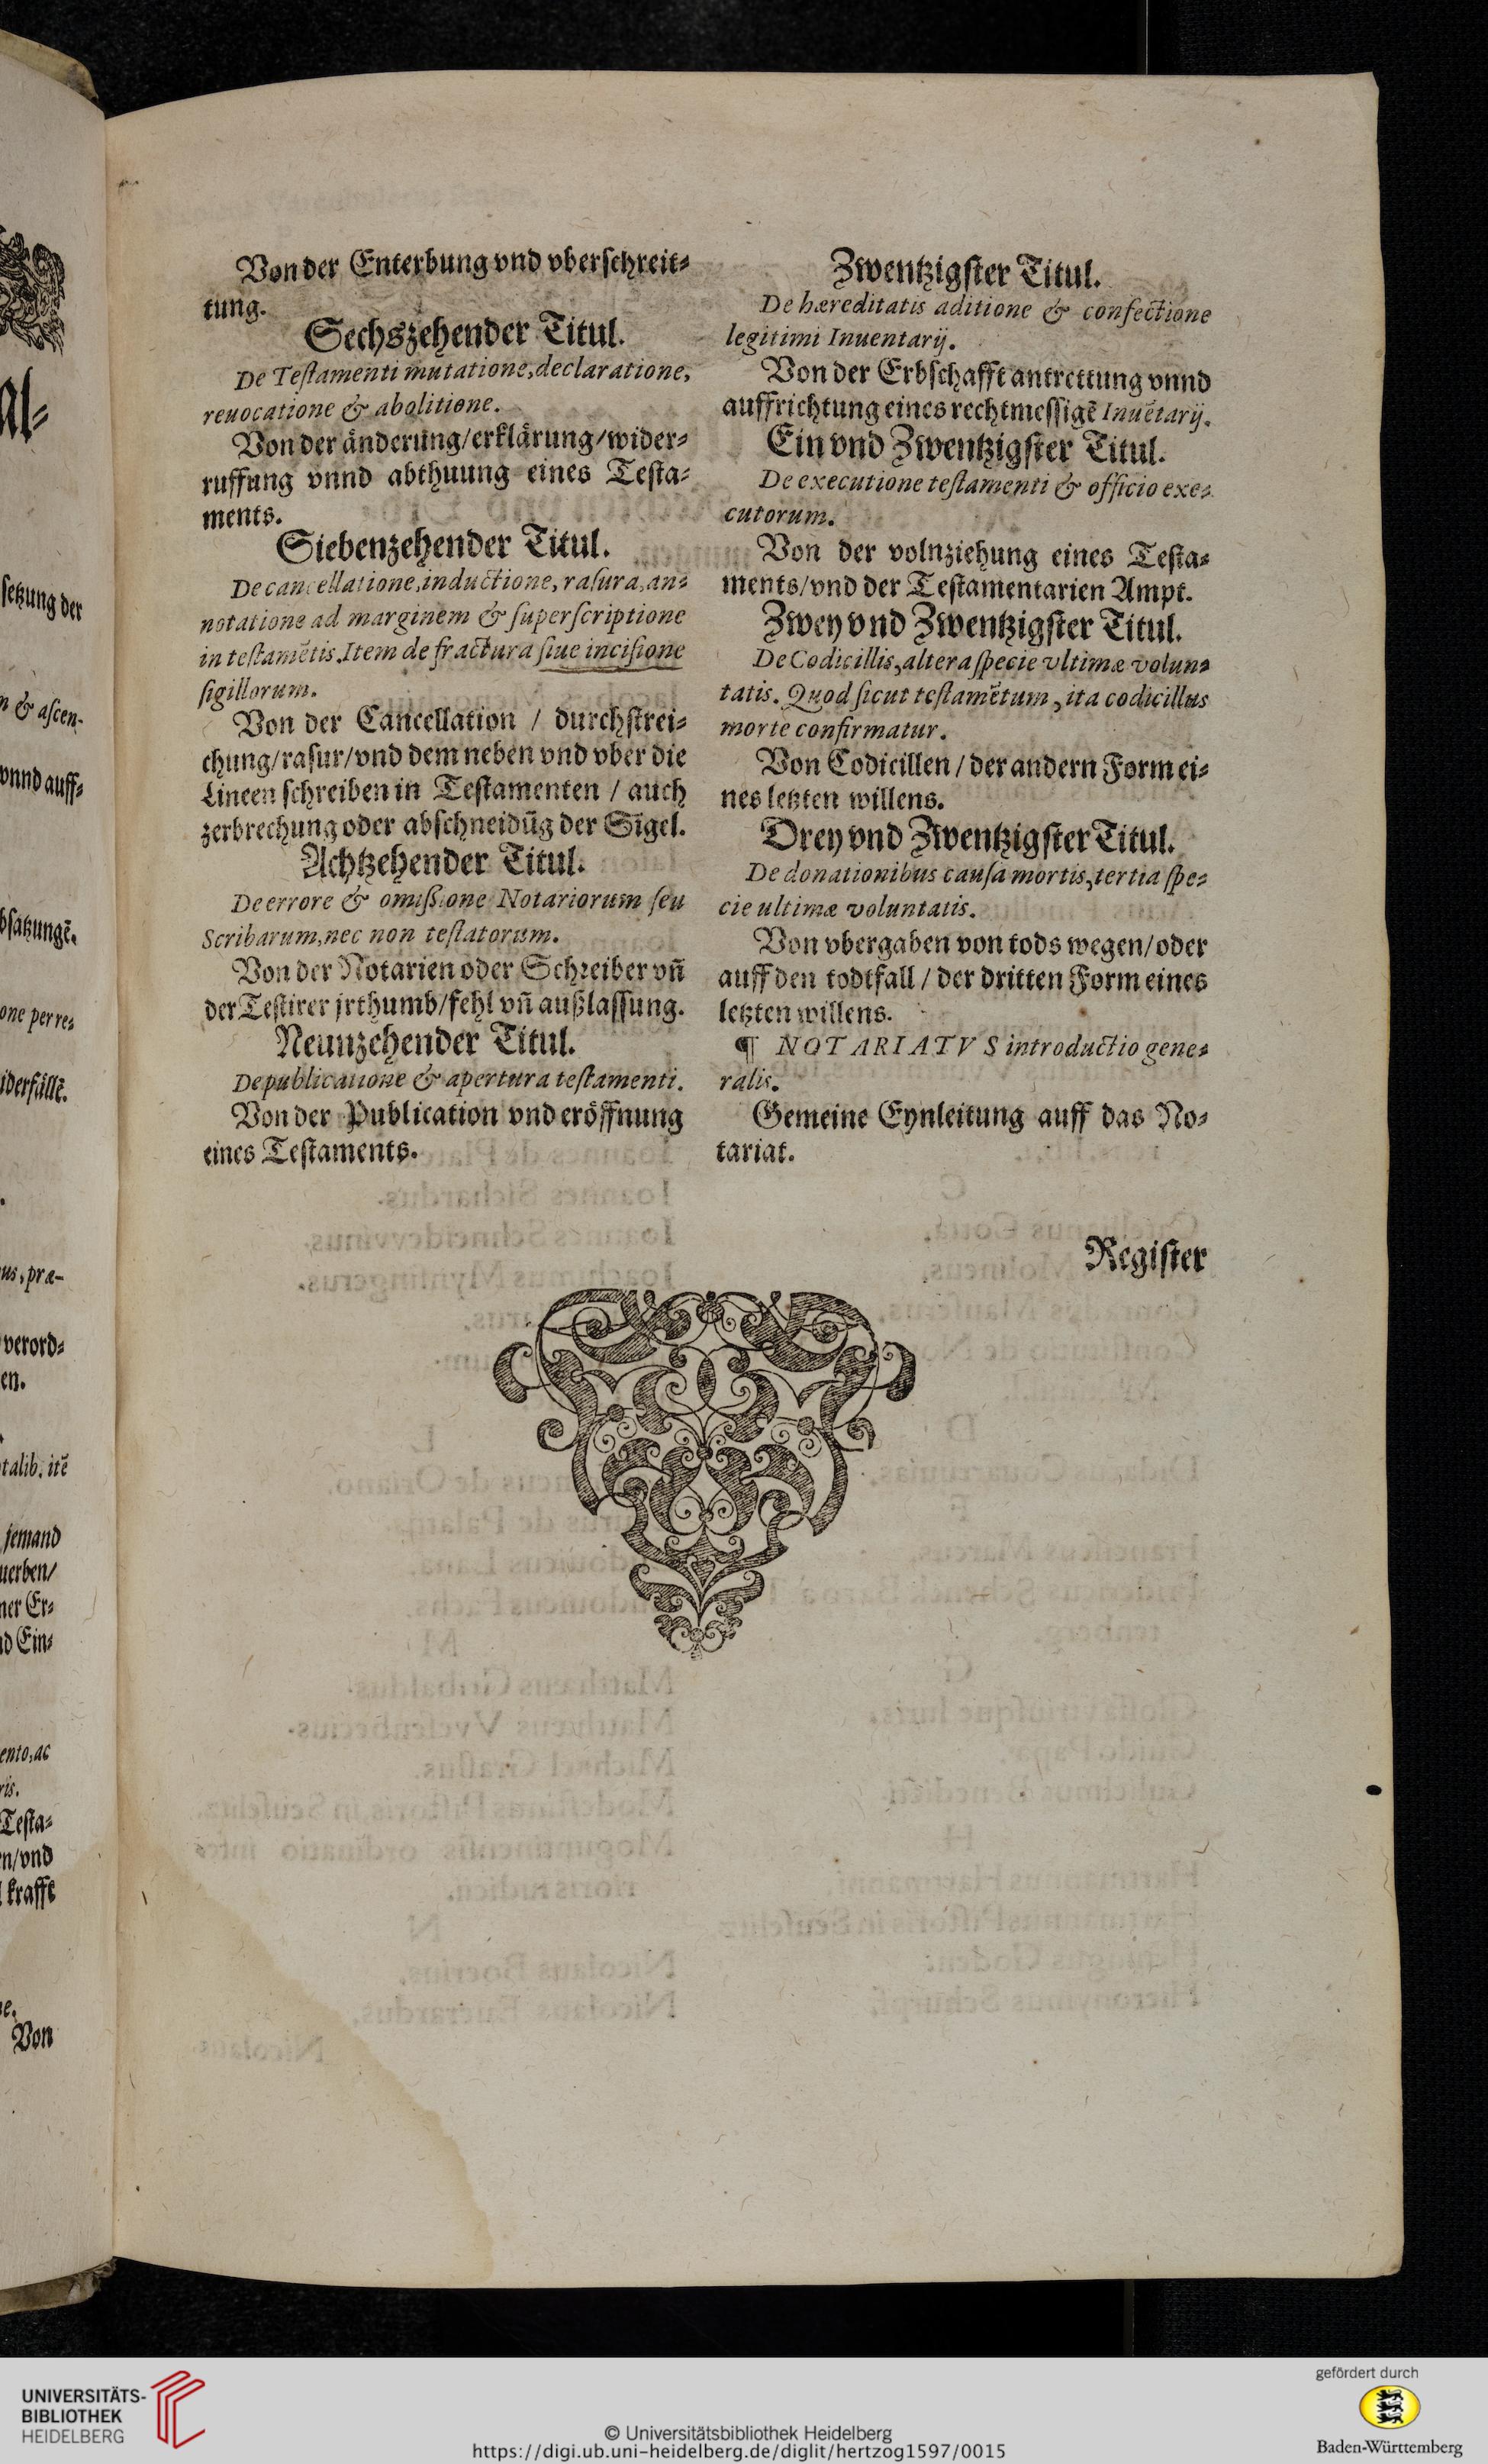 Von der Enterbung vnd vberschreit-
tung.
Sechszehender Titul.
De Testamenti mutatione, declaratione,
reuocatione & abolitione.
Von der änderung/erklärung/wider-
ruffung vnnd abthuung eines Testa-
ments.
Siebenzehender Titul.
De cancellatione, inductione, rasura, an-
notatione ad marginem & superscriptione
in testamētis. Item de fractura siue incisione
sigillorum.
Von der Cancellation / durchstrei-
chung/rasur/vnd dem neben vnd vber die
Lineen schreiben in Testamenten / auch
zerbrechung oder abschneidūg der Sigel.
Achtzehender Titul.
De errore & omissione Notariorum seu
Scribarum, nec non testatorum.
Von der Notarien oder Schreiber vñ
der Testirer jrthumb/fehl vñ außlassung.
Neunzehender Titul.
De publicatione & apertura testamenti.
Von der Publication vnd eröffnung
eines Testaments.
Zwentzigster Titul.
De hæreditatis aditione & confectione
legitimi Inuentarij.
Von der Erbschafft antrettung vnnd
auffrichtung eines rechtmessigē Inuētarij.
Ein vnd Zwentzigster Titul.
De executione testamenti & officio exe-
cutorum.
Von der volnziehung eines Testa-
ments/vnd der Testamentarien Ampt.
Zwey vnd Zwentzigster Titul.
De Codicillis, altera specie vltimæ volun-
tatis. Quod sicut testamētum, ita codicillus
morte confirmatur.
Von Codicillen / der andern Form ei-
nes letzten willens.
Drey vnd Zwentzigster Titul.
De donationibus causa mortis, tertia spe-
cie ultimæ voluntatis.
Von vbergaben von tods wegen/oder
auff den todtfall / der dritten Form eines
letzten willens.
¶ NOTARIATVS introductio gene-
ralis.
Gemeine Eynleitung auff das No-
tariat.
Register
UNIVERSITÄTS-
BIBLIOTHEK
HEIDELBERG
© Universitätsbibliothek Heidelberg
https://digi.ub.uni-heidelberg.de/diglit/hertzog1597/0015
gefördert durch
Baden-Württemberg